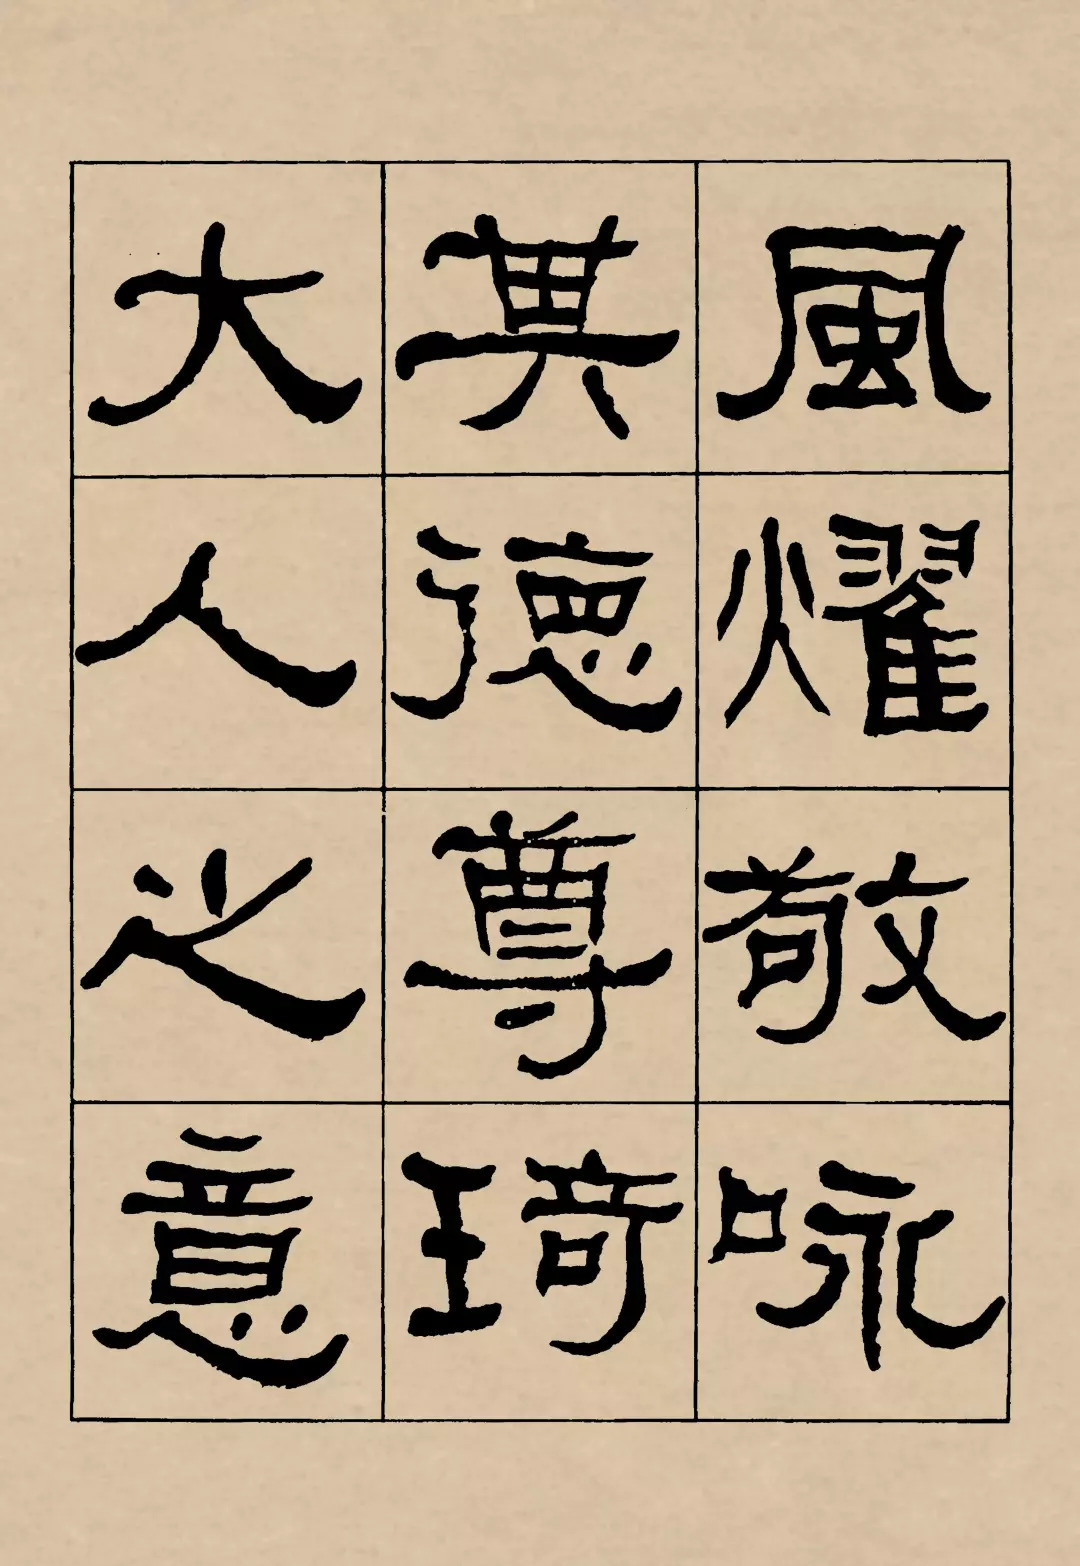 風燿敬咏
其德尊琦
大人之意